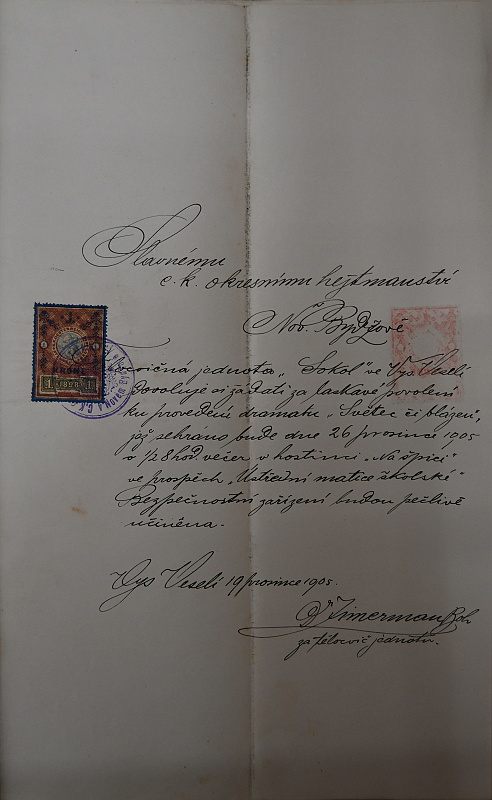 Slavnému
c. k. okresnímu hejtmanství
Nov. Bydžově
1 KRONE
1 1898 1
jednota „Sokol“ ve Vys. Veselí
dovoluje si žádati za laskavé povolení
ku provedení dramatu „Světec či blázen“,
jež sehráno bude dne 26 prosince 1905
o 1/2 8 hod. večer v hostinci „Na špici“
ve prospěch „Ústřední matice školské“
Bezpečnostní zařízení budou pečlivě
učiněna.
Vys Veselí 19 prosince 1905.
Zimerman Boh
za tělocvič jednotu.